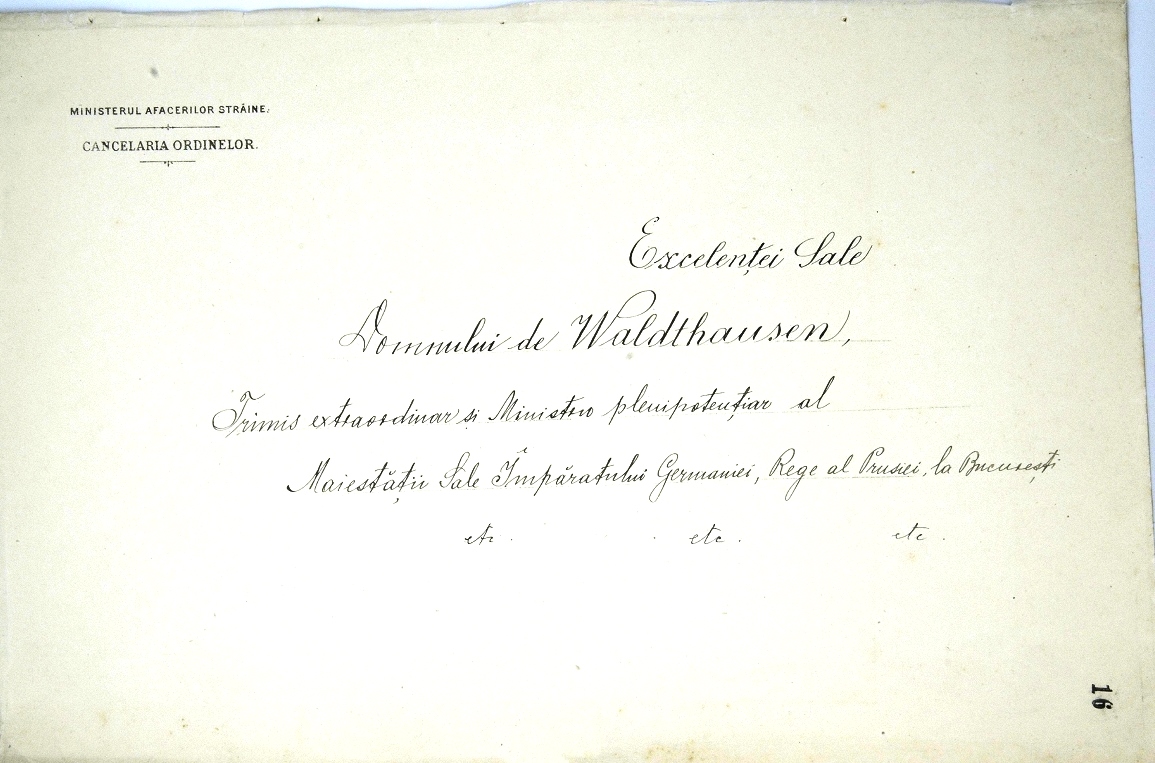 MINISTERUL AFACERILOR STRĂINE.
CANCELARIA ORDINELOR.
Excelenței Sale
Domnului de Waldthausen,
Trimis extraordinar și Ministru plenipotențiar al
Maiestății Sale Împăratului Germaniei, Rege al Prusiei, la București
etc. etc. etc.
16